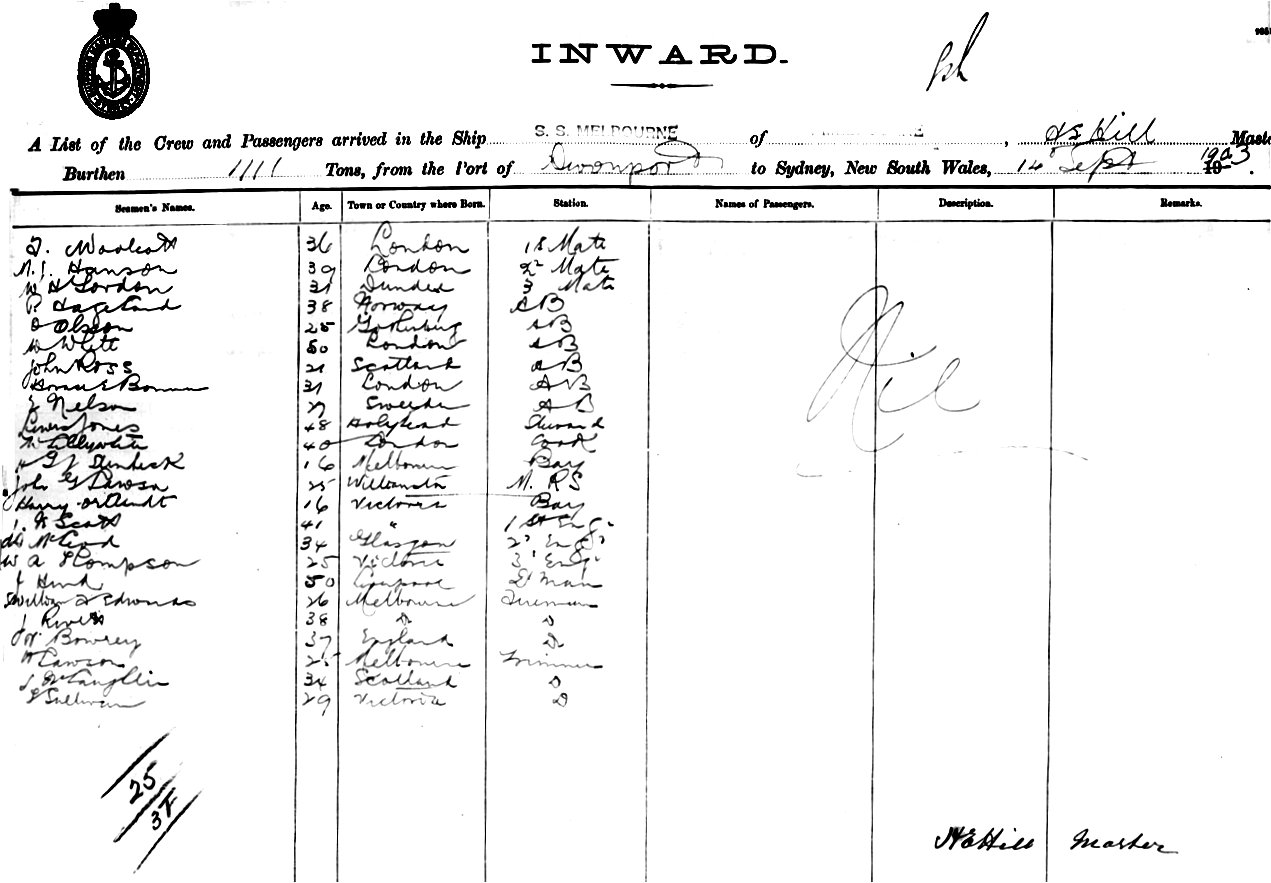 INWARD.
A List of the Crew and Passengers arrived in the Ship S. S. MELBOURNE of , Hill Maste
Burthen 1111 Tons, from the Port of Devonport to Sydney, New South Wales, 14 Sept 1903.
Seamen's Names. Age. Town or Country where Born. Station. Names of Passengers. Description. Remarks.
36 London 1st Mate
Hanson 39 London 2nd Mate
W H Gordon 31 Dundee 3 Mate
P. 38 Norway AB
O Olsson 25 AB
W White 50 London AB
John Ross 21 Scotland AB
31 London AB
Nelson 27 Sweden AB
Lewis Jones 48 Holyhead Steward
Lillywhite 40 London Cook
16 Melbourne Boy
John Lawson 25 M. R S
Harry 16 Victoria Boy
Scott 41 " 1st Eng
McLeod 34 Glasgow 2 Eng
W A Thompson 25 Victoria 3 Eng
J Hind 50 Liverpool Man
William Edwards 26 Melbourne Fireman
J Rivers 38 D D
Bowrey 37 England D
Lawson 25 Melbourne Trimmer
34 Scotland D
Sullivan 29 Victoria D
Nil
25
37
Hill Master